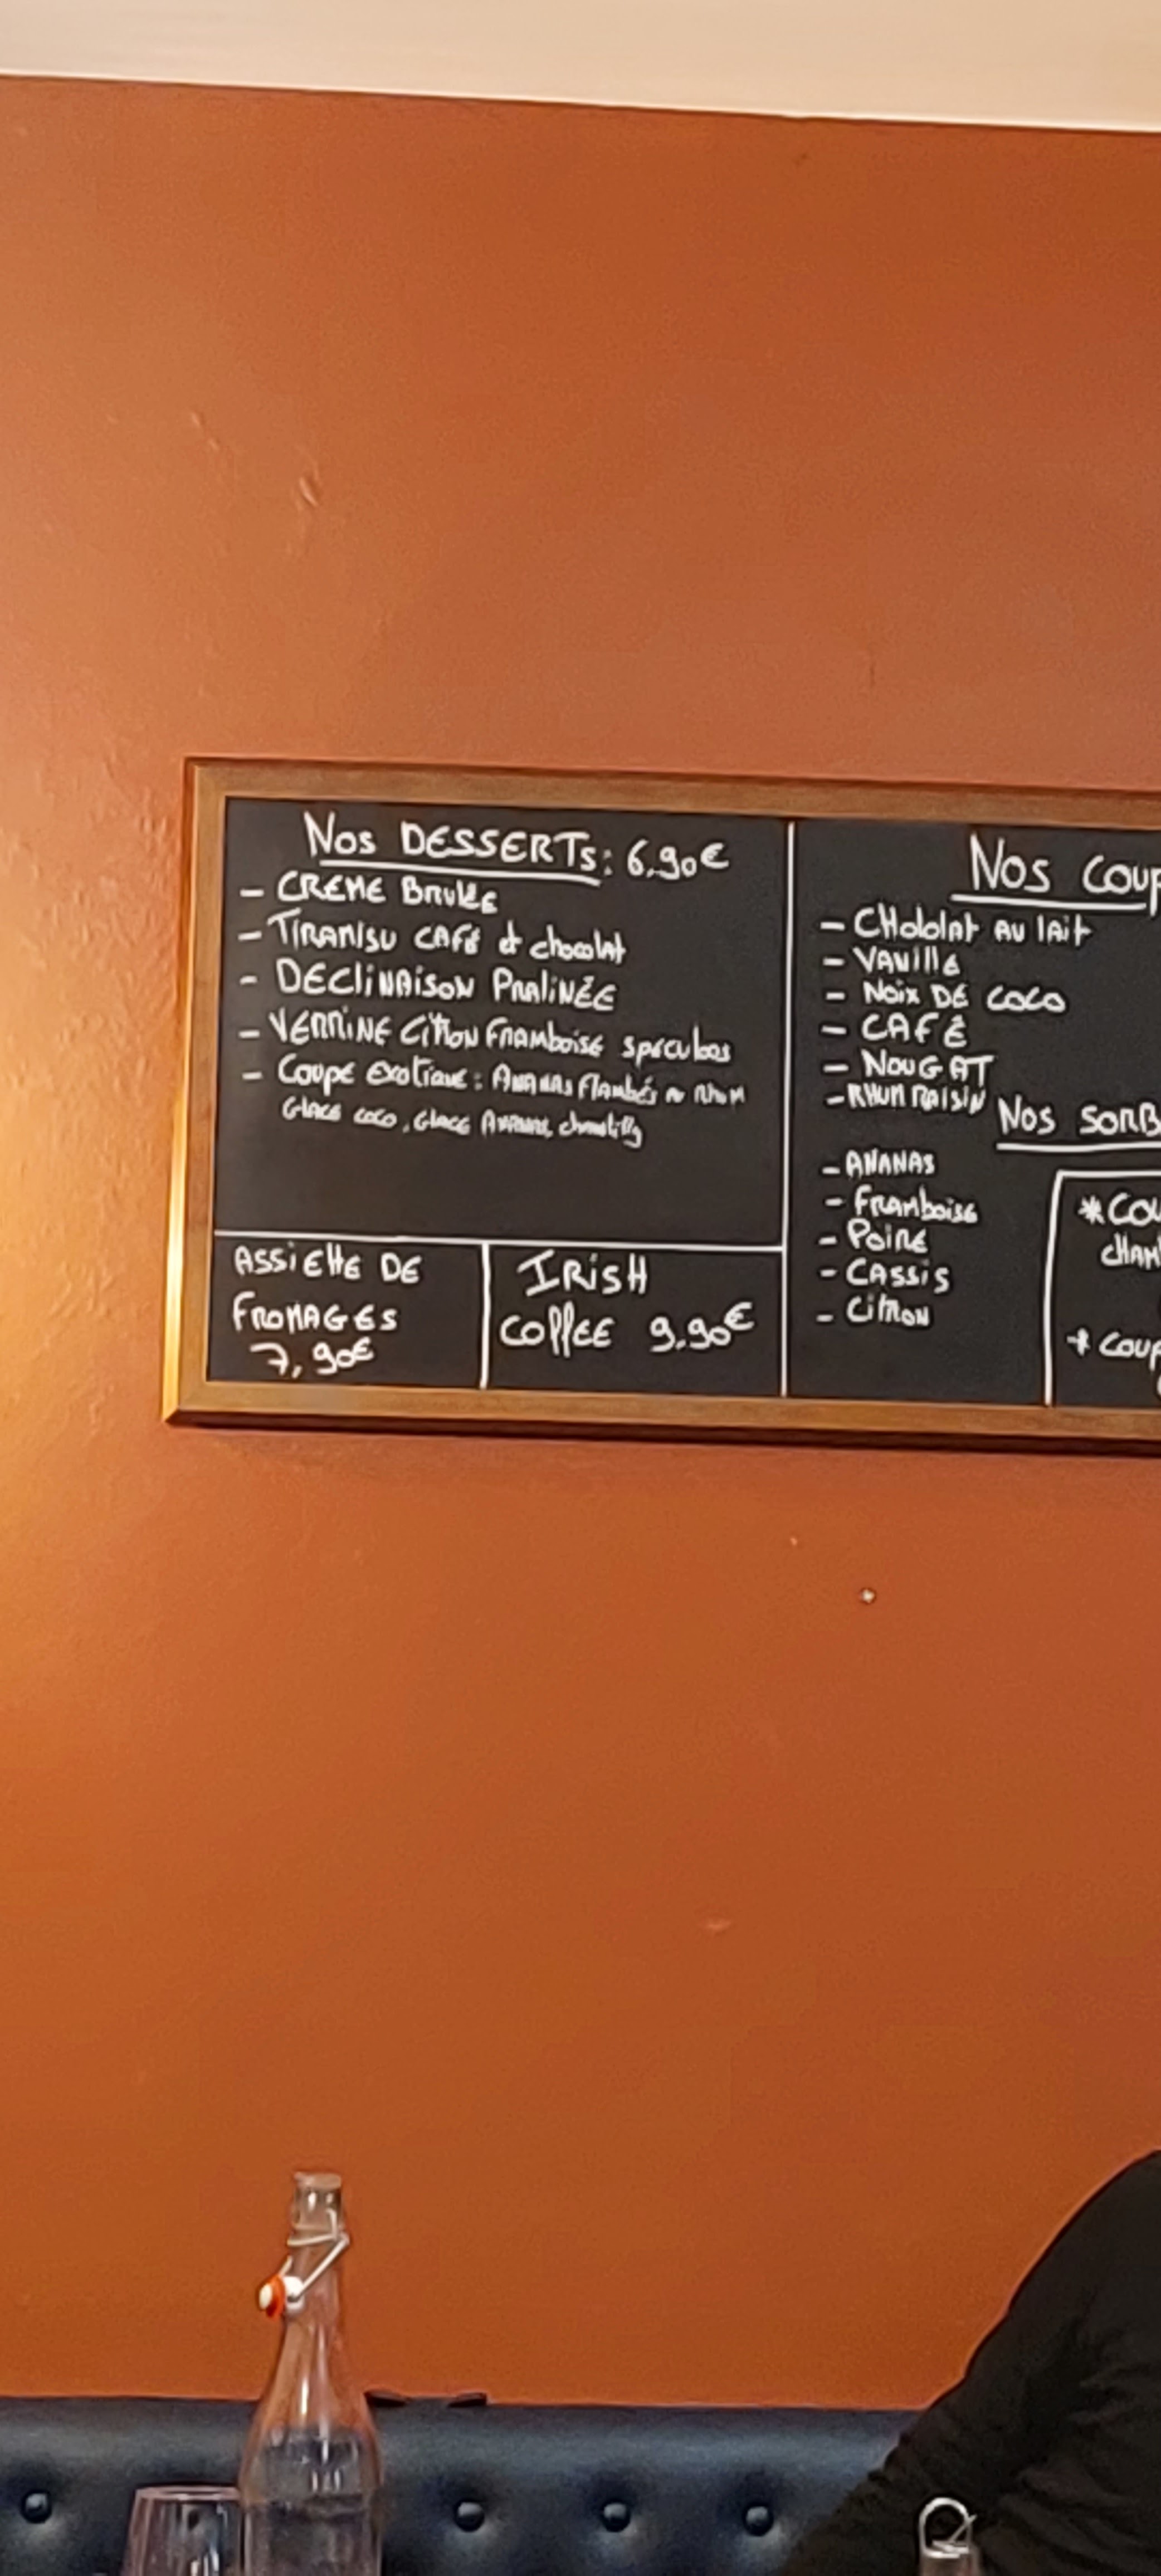 Nos DESSERTS: 6,90€
- CREME BRULEE
- TIRAMISU CAFÉ et chocolat
- DECLINAISON PRALINÉE
- VERRINE CITRON FRAMBOISE speculoos
- Coupe exotique: ANANAS Flambés au RHUM
GLACE coco, GLACE ANANAS, chantilly
ASSIETTE DE
FROMAGES
7,90€
IRISH
COFFEE 9,90€
Nos COUP
- CHOCOLAT AU LAIT
- VANILLE
- NOIX DE COCO
- CAFÉ
- NOUGAT
- RHUM RAISIN
Nos SORB
- ANANAS
- FRAMBOISE
- POIRE
- CASSIS
- CITRON
* COU
CHAN
* COUP